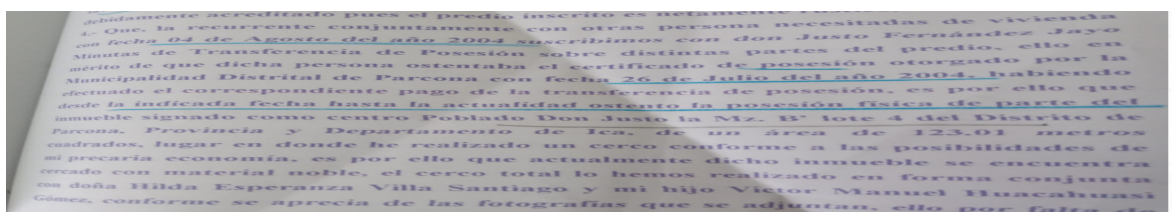 debidamente acreditado pues el predio inscrito es netamente
4.- Que, la recurrente conjuntamente con otras persona necesitadas de vivienda
con fecha 04 de Agosto del año 2004 suscribimos con don Justo Fernández Jayo
Minutas de Transferencia de Posesión sobre distintas partes del predio, ello en
mérito de que dicha persona ostentaba el certificado de posesión otorgado por la
Municipalidad Distrital de Parcona con fecha 26 de Julio del año 2004, habiendo
efectuado el correspondiente pago de la transferencia de posesión, es por ello que
desde la indicada fecha hasta la actualidad ostento la posesión física de parte del
inmueble signado como centro Poblado Don Justo la Mz. B' lote 4 del Distrito de
Parcona, Provincia y Departamento de Ica, de un área de 123.01 metros
cuadrados, lugar en donde he realizado un cerco conforme a las posibilidades de
mi precaria economía, es por ello que actualmente dicho inmueble se encuentra
cercado con material noble, el cerco total lo hemos realizado en forma conjunta
con doña Hilda Esperanza Villa Santiago y mi hijo Victor Manuel Huacahuasi
Gómez, conforme se aprecia de las fotografías que se adjuntan, ello por falta de